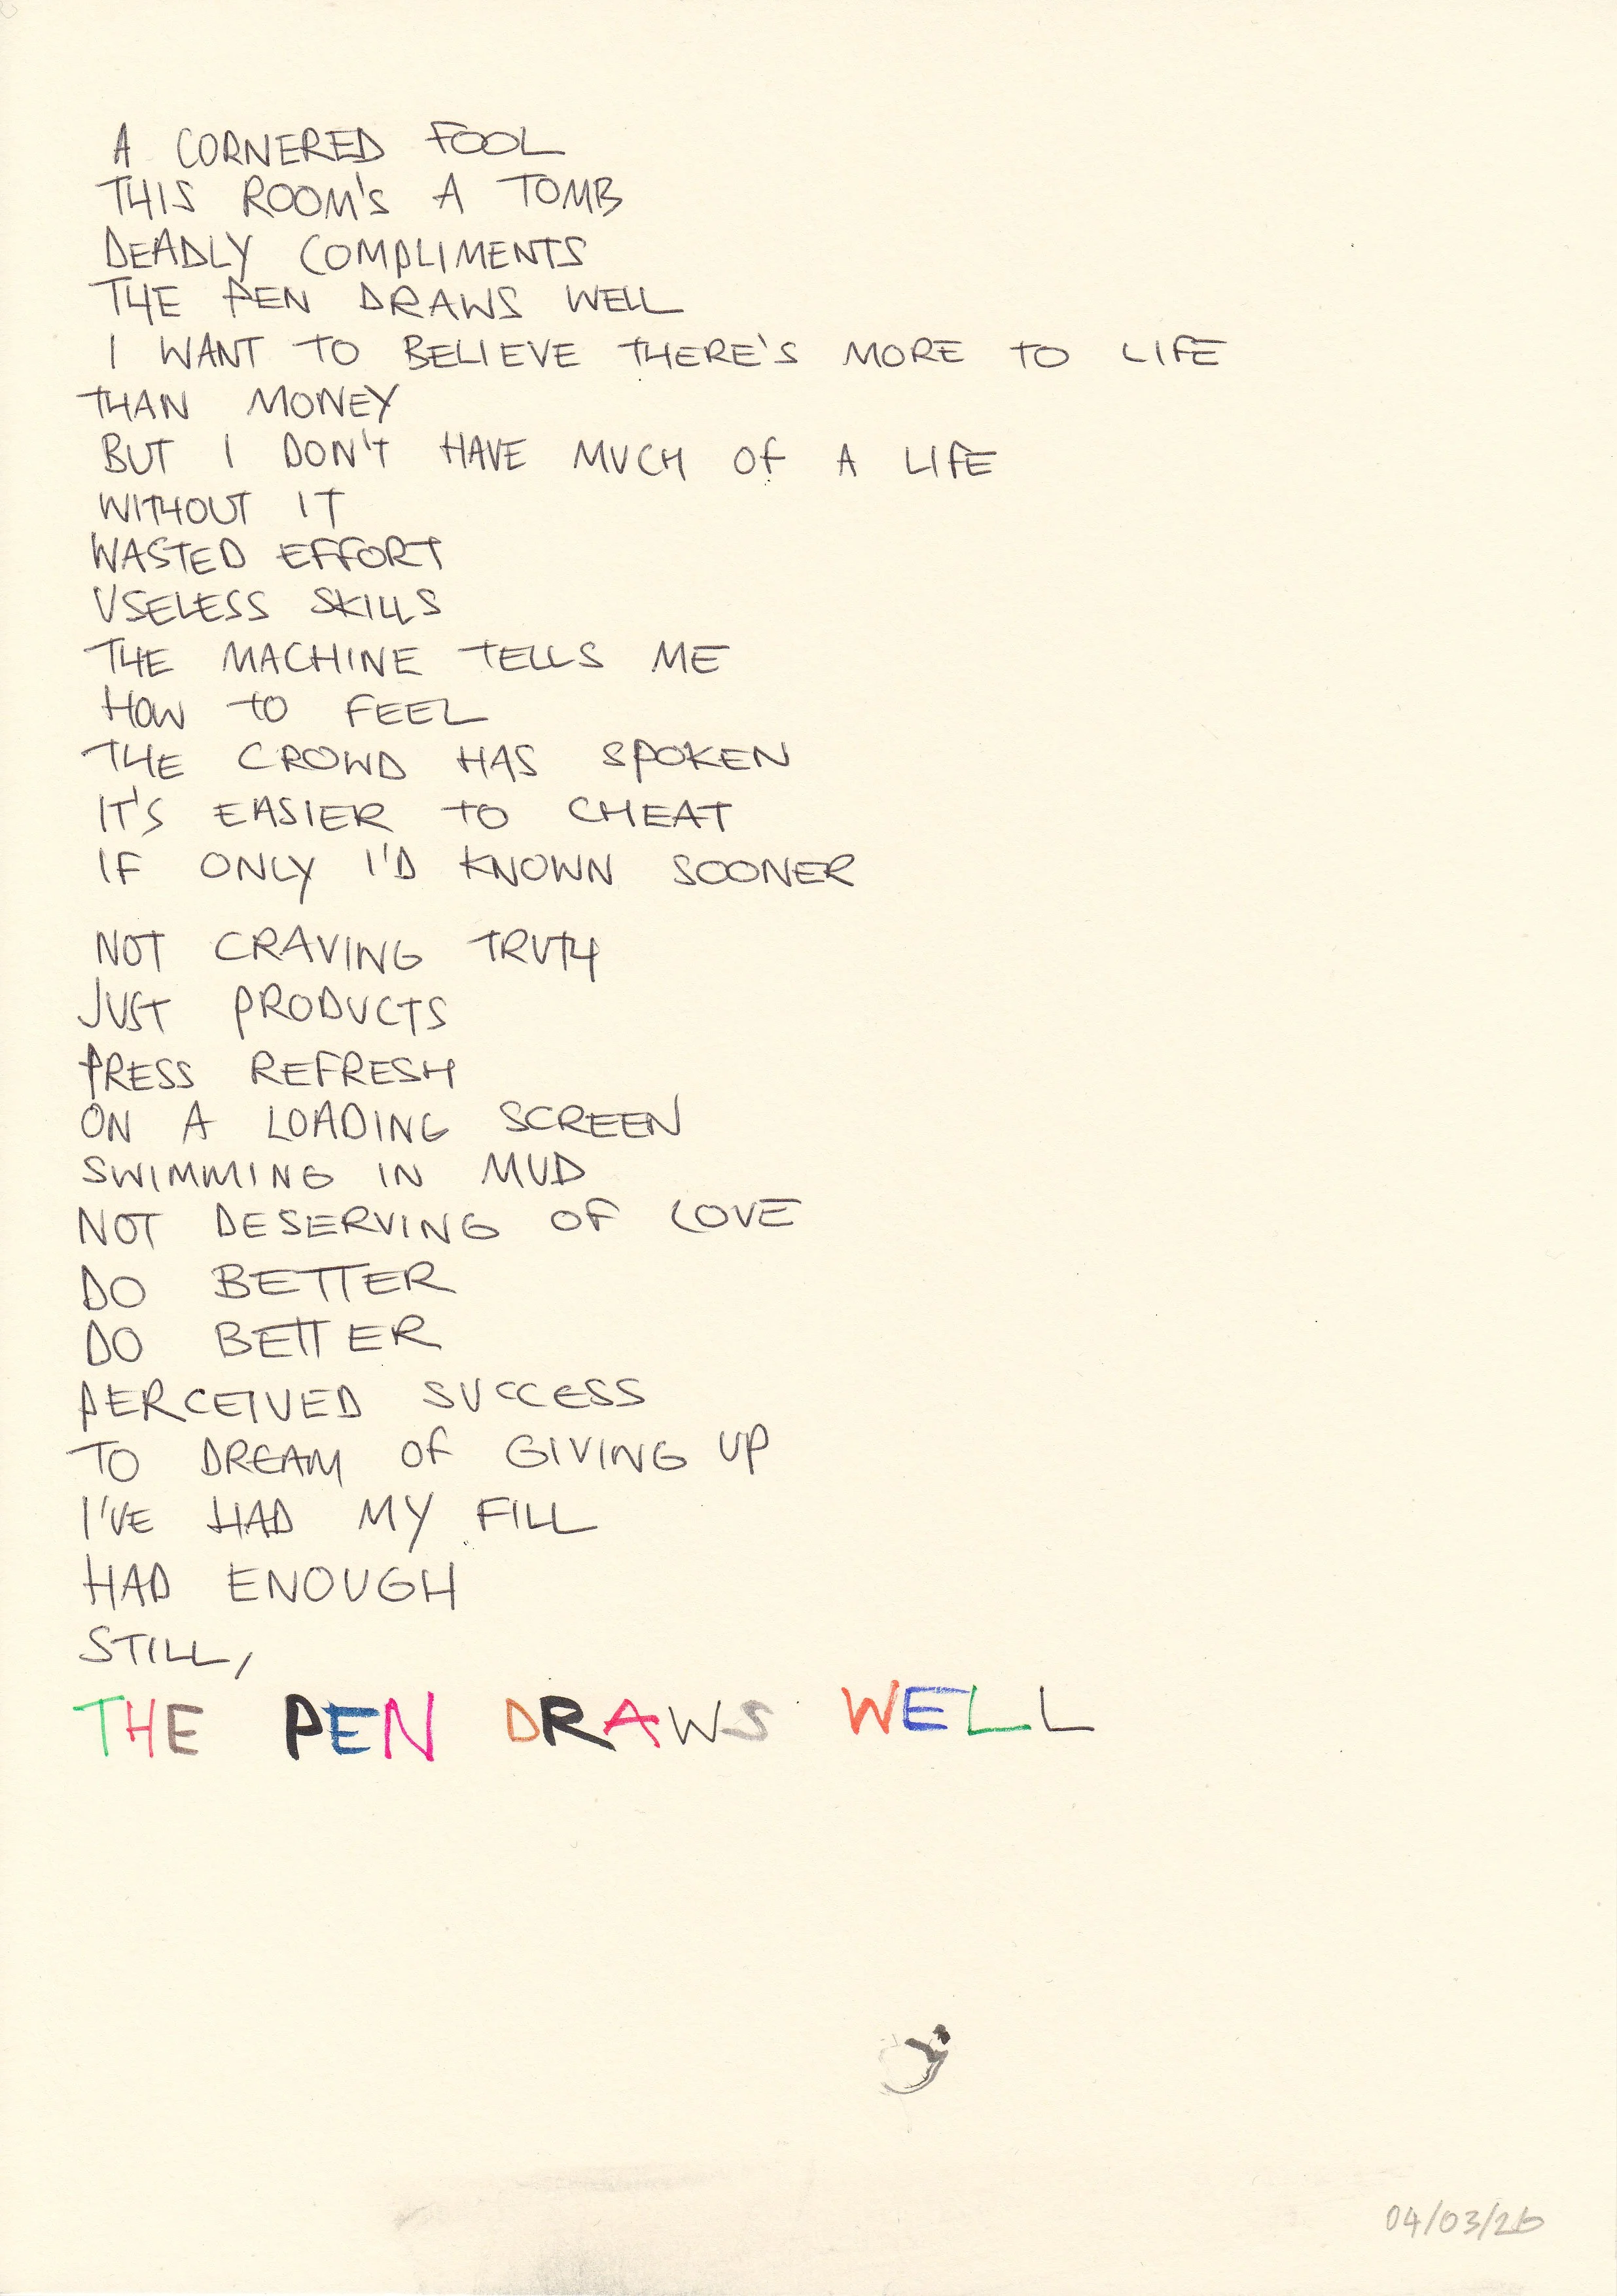 A CORNERED FOOL
THIS ROOM'S A TOMB
DEADLY COMPLIMENTS
THE PEN DRAWS WELL
I WANT TO BELIEVE THERE'S MORE TO LIFE
THAN MONEY
BUT I DON'T HAVE MUCH OF A LIFE
WITHOUT IT
WASTED EFFORT
USELESS SKILLS
THE MACHINE TELLS ME
HOW TO FEEL
THE CROWD HAS SPOKEN
IT'S EASIER TO CHEAT
IF ONLY I'D KNOWN SOONER
NOT CRAVING TRUTH
JUST PRODUCTS
PRESS REFRESH
ON A LOADING SCREEN
SWIMMING IN MUD
NOT DESERVING OF LOVE
DO BETTER
DO BETTER
PERCEIVED SUCCESS
TO DREAM OF GIVING UP
I'VE HAD MY FILL
HAD ENOUGH
STILL,
THE PEN DRAWS WELL
04/03/26